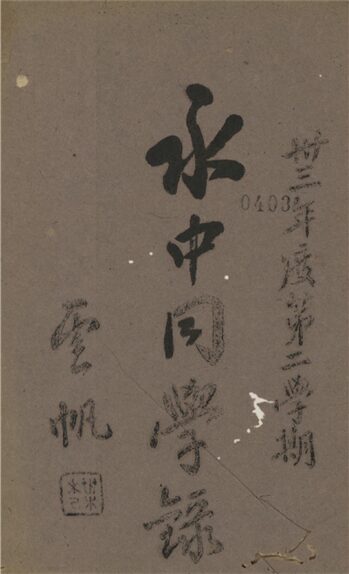 卅三年度第二學期
0403
永中同學錄
雲帆